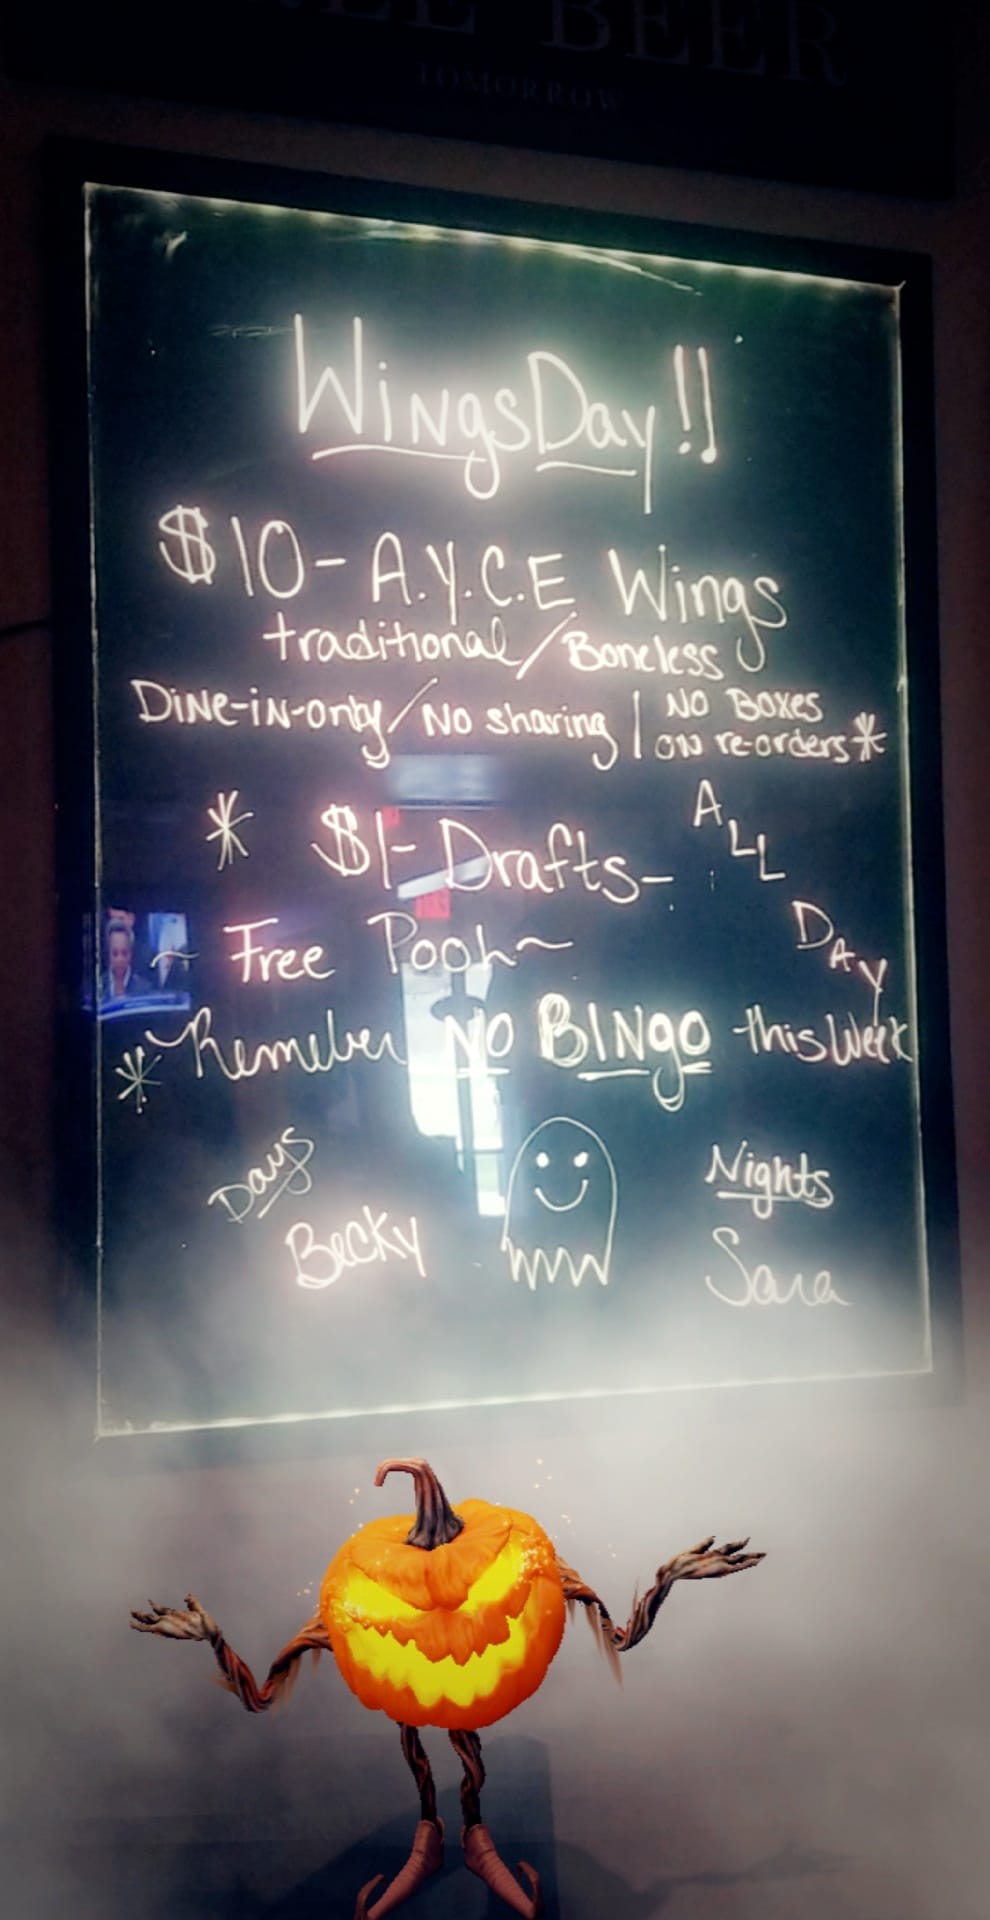 BEER
TOMORROW
WingsDay!!
$10- A.Y.C.E Wings
traditional/Boneless
Dine-in-only/No sharing | No Boxes
on re-orders*
* $1- Drafts- ALL
DAY
~ Free Pool ~
* Remeber NO BINgo this Week
Days
Becky
Nights
Sara